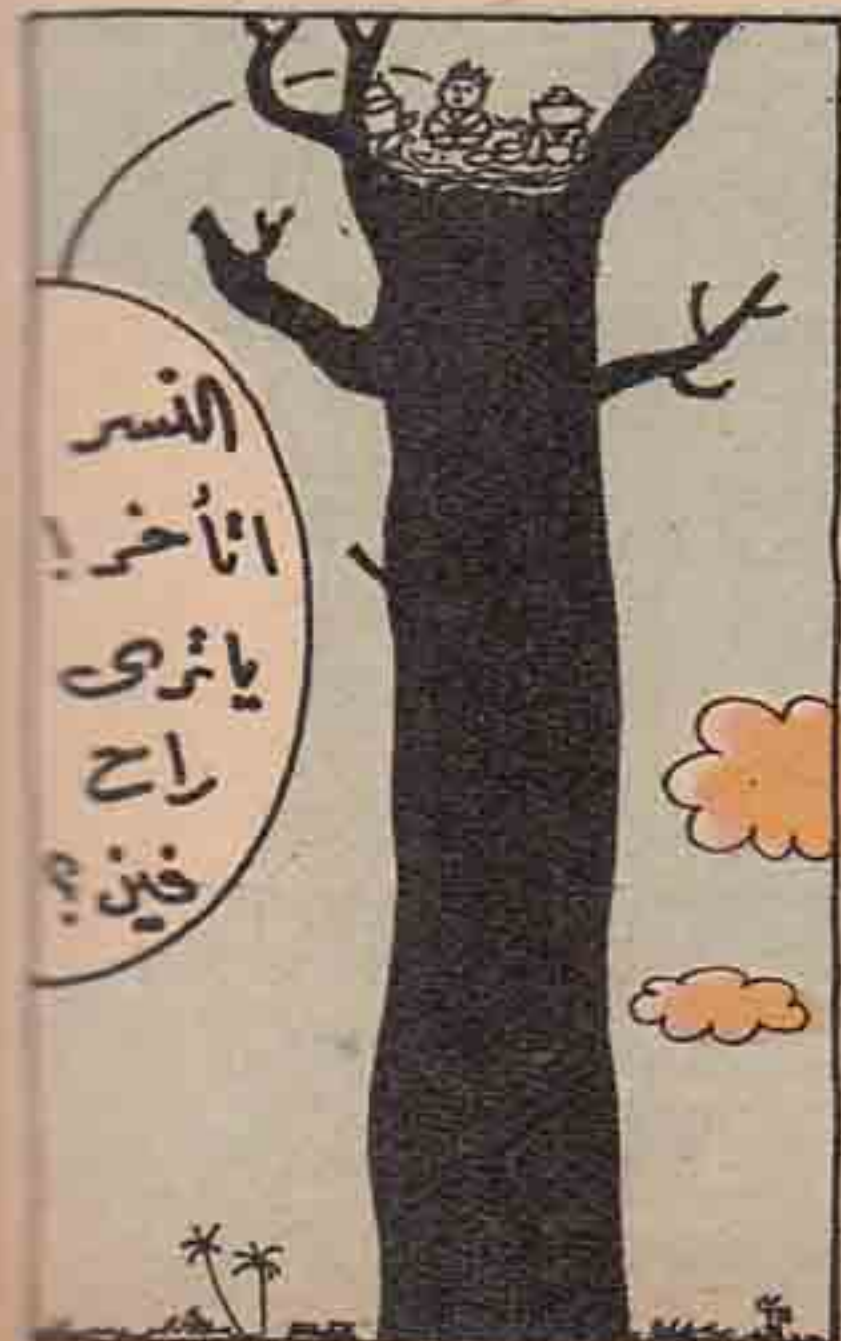 النسر
اتأخر!
ياترى
راح
فين؟